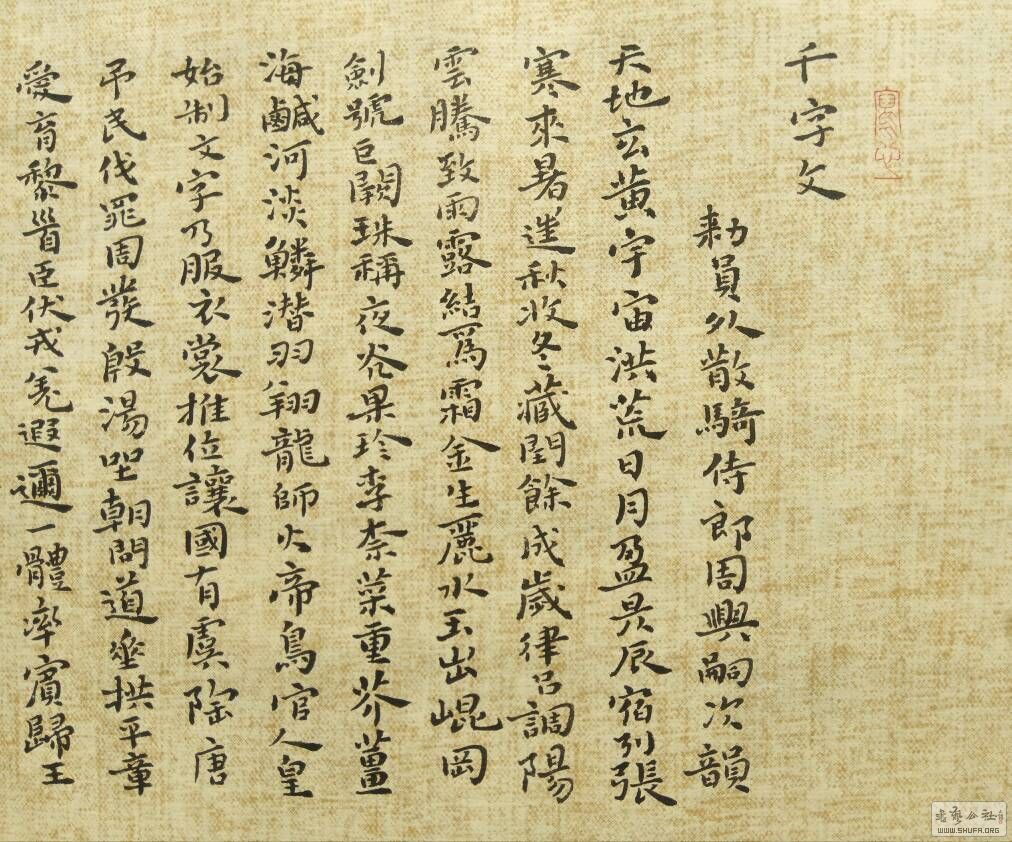 千字文
勅員外散騎侍郎周興嗣次韻
天地玄黃宇宙洪荒日月盈昃辰宿列張
寒來暑逞秋收冬藏閏餘成歲律呂調陽
雲騰致雨露結為霜金生麗水玉出崐岡
劍號巨闕珠稱夜光果珍李柰菜重芥薑
海鹹河淡鱗潛羽翔龍師火帝鳥官人皇
始制文字乃服衣裳推位讓國有虞陶唐
弔民伐罪周發殷湯坐朝問道垂拱平章
愛育黎首臣伏戎羌遐邇一體率賓歸王
書藝公社
WWW.SHUFA.ORG